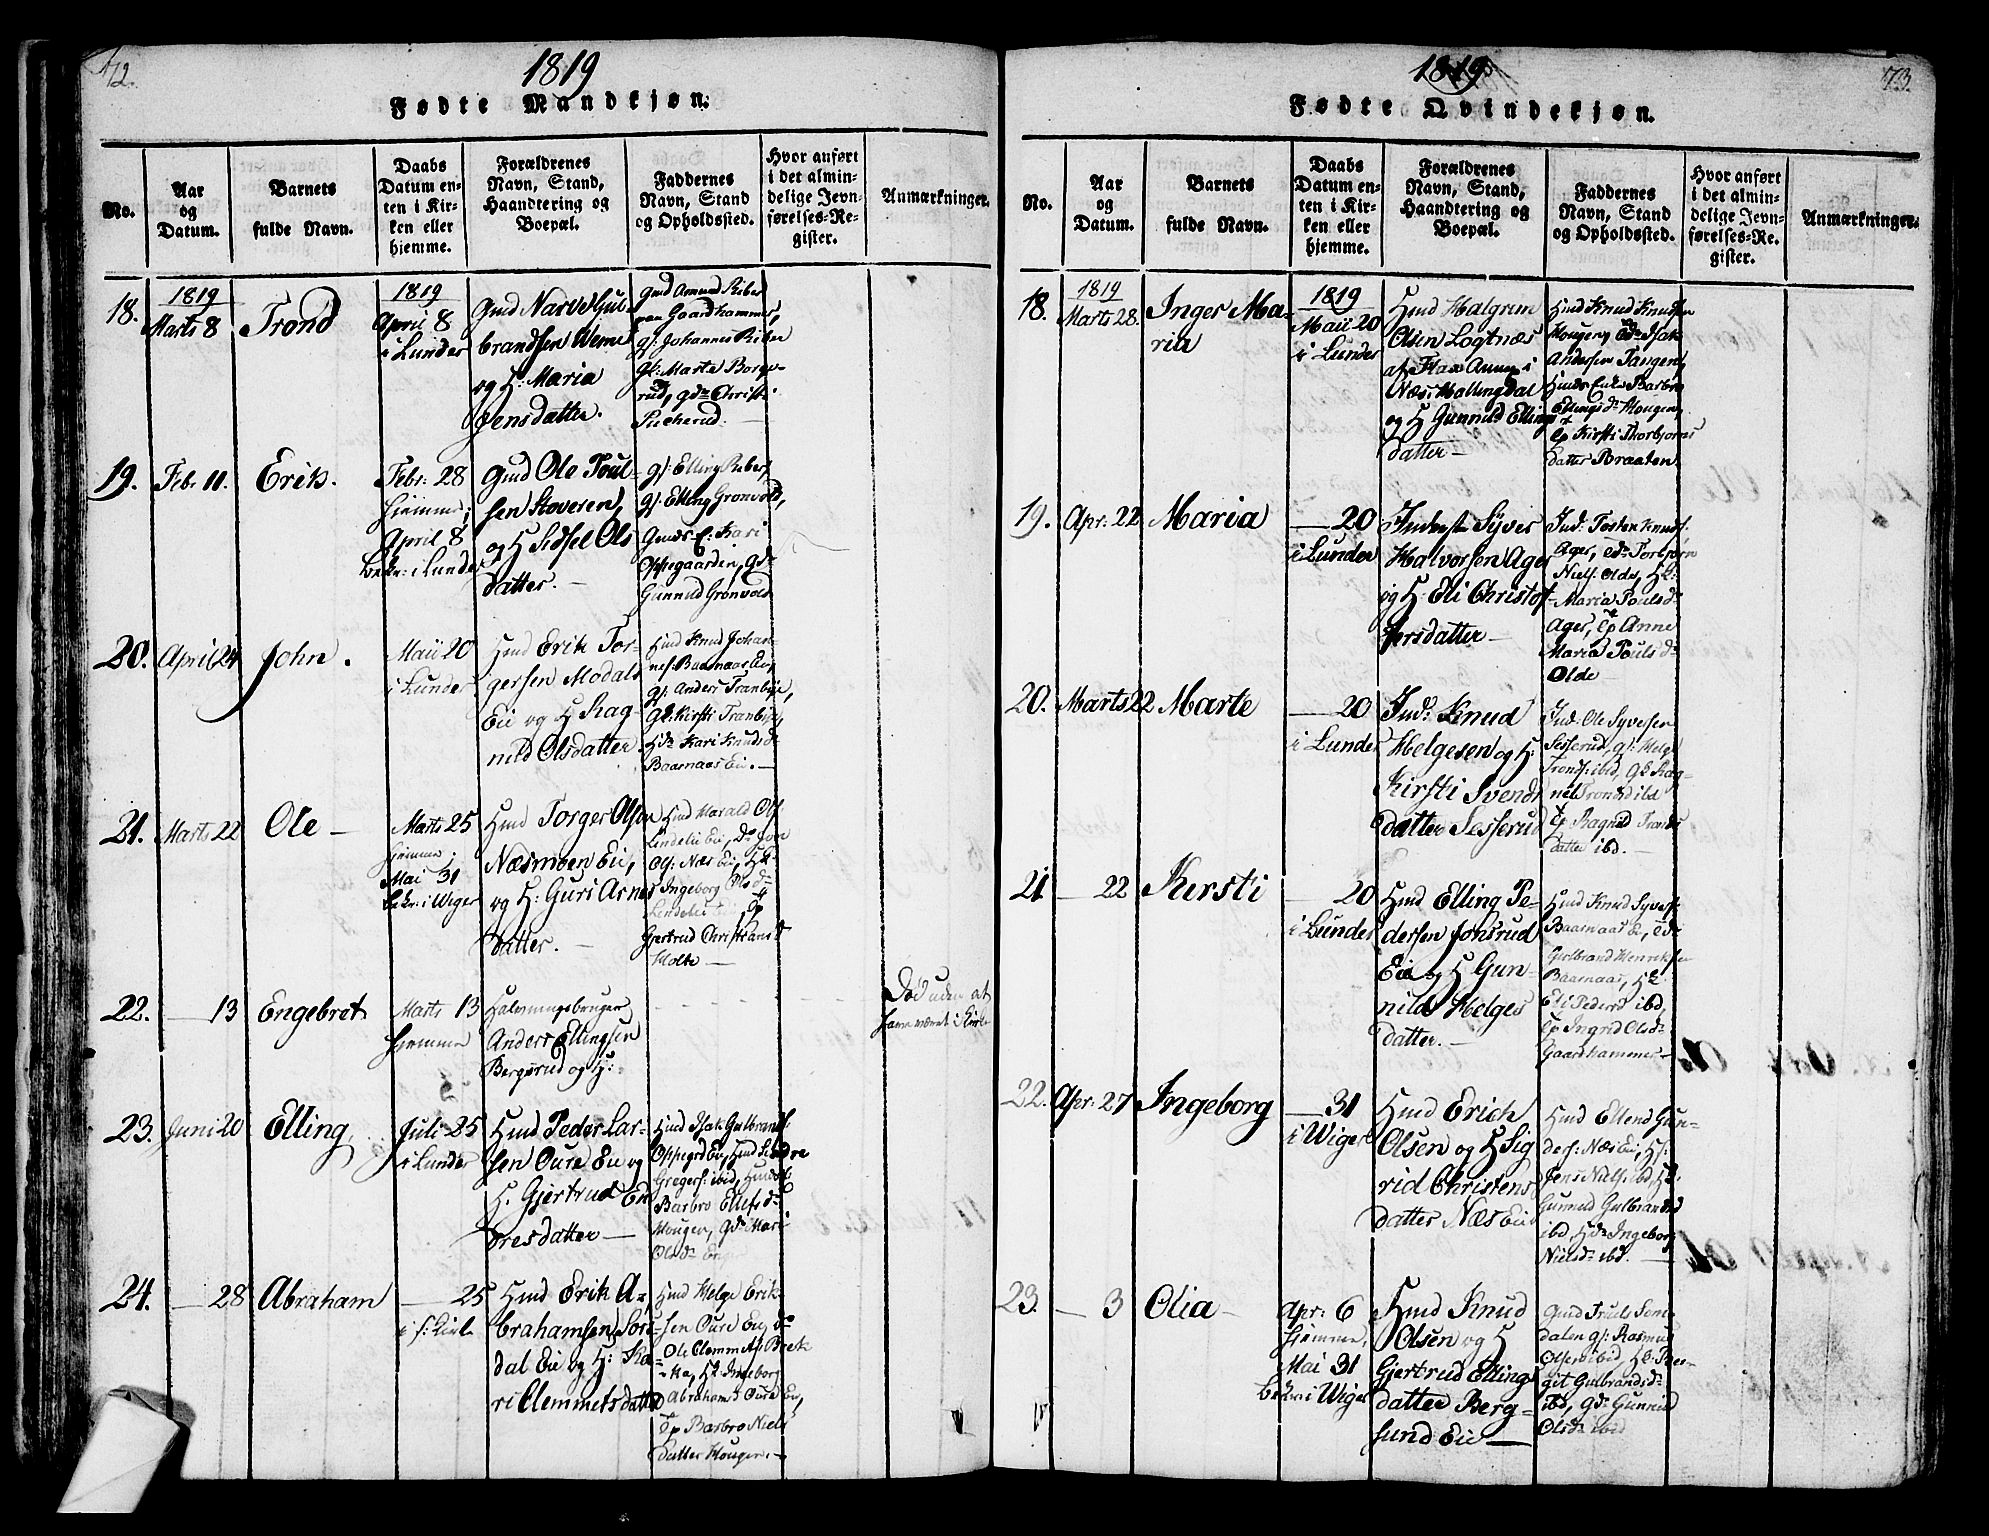 72.
1819
Fødte Mandkjøn.
No.
Aar
og
Datum.
Barnets
fulde Navn.
Daabs
Datum en-
ten i Kir-
ken eller
hjemme.
Forældrenes
Navn, Stand,
Haandtering og
Boepæl.
Faddernes
Navn, Stand
og Opholdssted.
Hvor anført
i det almin-
delige Jevn-
førelses-Re-
gister.
Anmærkninger.
18.
1819
Marts 8
Trond
1819
April 8
i Lunder
Gmd Narve Gul
brandsen Weme
og H. Maria
Jensdatter.
Gmd Amund Riber
Gaardhammer,
gf: Johannes Riber
Gk: Marte Borge-
rud, gd Christi
Pucherud.
19.
Feb. 11.
Erik.
Febr. 28
hjemme;
April 8
bekr: i Lunder
Gmd Ole Poul-
sen Stoveren,
og H Sidsel Ols
datter.
gf: Elling Riber,
gf: Elling Grønvold,
Gmds E: Kari
Oppegaarden, gd
Gunnild Grønvold
20.
April 24
John.
Maii 20
i Lunder
Hmd Erik Tor-
gersen Modals
Eie og H Rag-
nild Olsdatter
Hmd Knud Johan-
nes: Baarnaas Ei,
gf: Anders Tranbye,
Gk: Kirsti Tranbye,
Hd Kari Knudsd
Baarnaas Ei.
21.
Marts 22
Ole
Marts 25
hjemme;
Mai 31
bekr: i Wiger
Hmd Torger Olsen
Næsmoen Eie,
og H: Guri Arnes
datter.
Hmd Harald Ols
Lindelie Ei, do Jon
Ols: Næs Ei, Hk
Ingeborg Olsd
Lindelie Ei, Ep
Gjertrud Christiansd
Molte
22.
13
Engebret
Marts 13
hjemme
Halvningsbruger
Anders Ellingsen
Bergsrud og H:
Død uden at
have været i Kirke
23.
Juni 20
Elling
Juli 25
i Lunder
Hmd Peder Lar-
sen Oure Eie og
H. Gjertrud En
dresdatter
Hmd Isak Gulbrands
Oppegrd Ei, Hmd Sindre
Gregers: ibid, Hmds
Barbro Ellefsd
Hougen, Gd: Mari
Olsd
24.
28
Abraham
25
Hmd Erik A-
brahamsen Sør-
dal Eie og H: Ka-
ri Clemmetsdatter
Hmd Helge Erik-
sen Oure Ei, do
Ole Clemmets: Brek
ka, Hk Ingeborg
Abrahamsd Oure Ei,
Ep Barbro Niels
datter Hougen
73.
1819
Fødte Qvindekjøn.
No.
Aar
og
Datum.
Barnets
fulde Navn.
Daabs
Datum en-
ten i Kir-
ken eller
hjemme.
Forældrenes
Navn, Stand,
Haandtering og
Boepæl.
Faddernes
Navn, Stand
og Opholdssted.
Hvor anført
i det almin-
delige Jevn-
førelses-Re-
gister.
Anmærkninger.
18.
1819
Marts 28.
Inger Ma-
ria
1819
Maii 20
i Lunder
Hmd Halgrim
Olsen Løgtnæs
af Flaa Annex i
Næs: Hallingdal
og H Gunnild Ellings
datter
Hmd Knud Knudsen
Hougen, Isak
Andersen Tangen,
Hmds Enke Barbro
Ellingsd Hougen
Ep Kirsti Thorbjørns
datter Braaten.
19.
Apr: 22
Maria
20
i Lunder
Inderst Syver
Halvorsen Ager
og H: Eli Christof-
fersdatter
Ind: Torsten Knuds:
Ager, Torbjørn
Niels: Olde, Hk:
Maria Poulsd
Ager, Ep Anne
Maria Poulsd
Olde
20.
Marts 22
Marte
20
i Lunder
Ind: Knud
Helgesen og H:
Kirsti Svends
datter Sesserud
Ind: Ole Syversen
Sesserud, gf: Helge
Tronds: ibid, Gk Rag-
nil Tronsd ibd
Ep Ragnild Tronds
datter ibd.
21
22
Kirsti
20
i Lunder
Hmd Elling Pe-
dersen Jonsrud
Eie og H Gun-
nild Helges
datter.
Hmd Knud Syvers:
Baarnaas Ei,
Gulbrand Henriksen
Baarnaas, Hk:
Eli Pedersd ibd,
Ep Ingrid Olsd
Gaardhammer
22.
Apr: 27
Ingeborg
31
i Wiger
Hmd Erich
Olsen og H Sig
rid Christens
datter Næs Eie
Hmd Ellend Gun-
ders: Næs Ei, Hf:
Jens Niels: ibd, Hk:
Gunnild Gulbrandsd
ibd, Hd Ingeborg
Nielsd ibd.
23.
3
Olia
Apr: 6
hjemme,
Mai 31
bekr: i Wiger
Hmd Knud
Olsen og H
Gjertrud Ellings
datter Berg-
sund Eie
Gmd Truls Sene-
dalen gf: Rasmus
Olsen ibid, Hk: Ber-
git Gulbrandsd
ibd, Gd Gunnild
Olsd ibid